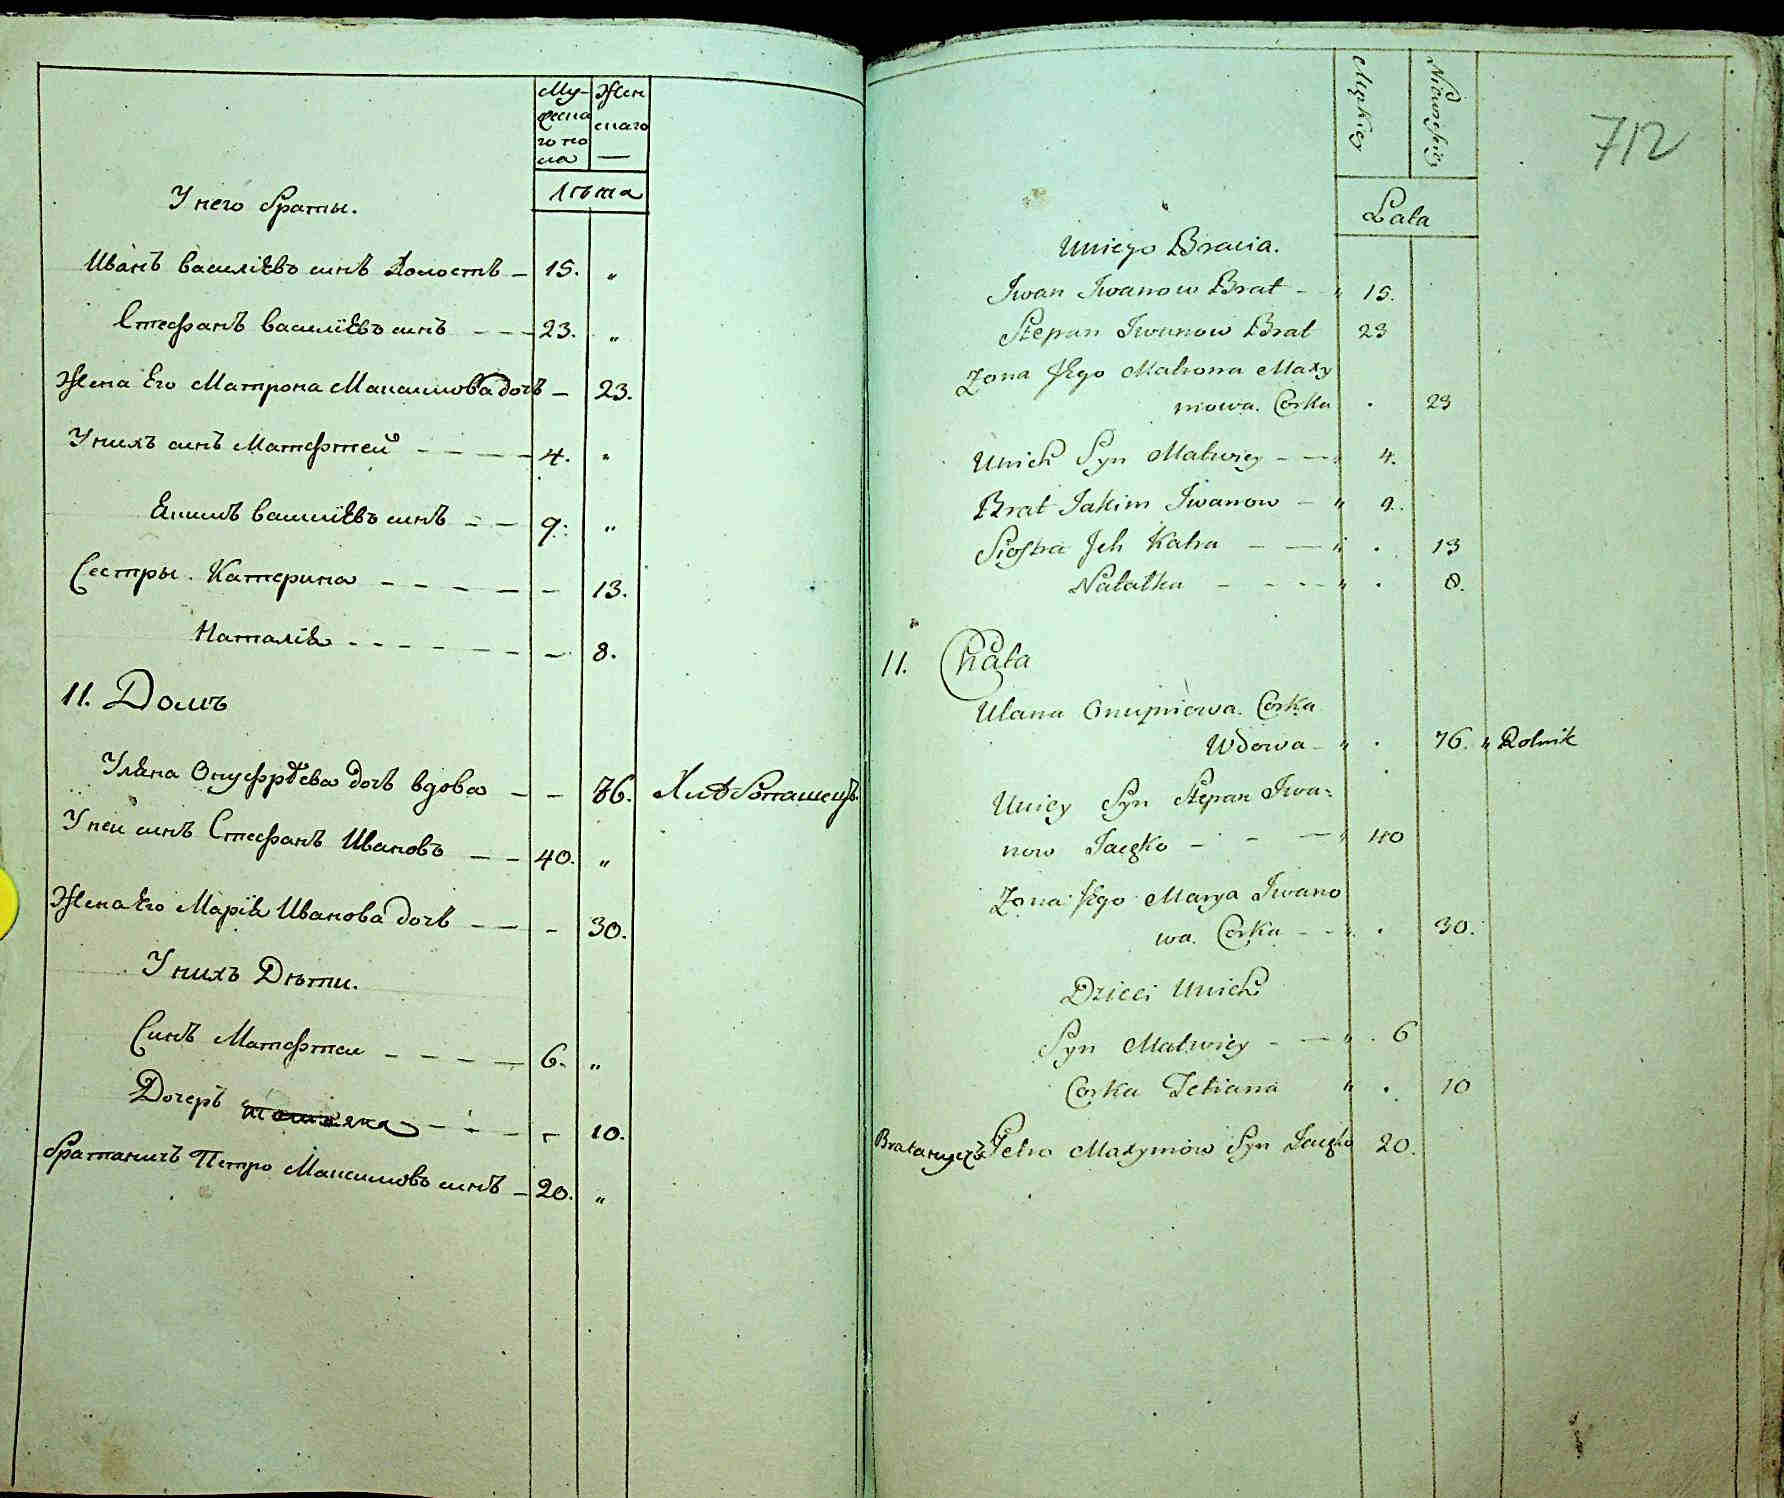 Му-
жеска
го по
ла
Жен
скаго
Лѣта
У него браты.
Иванъ Василіевъ синъ холостъ - 15. "
Стефанъ Василіевъ синъ - - - 23. "
Жена Его Матрона Максимова дочь - 23.
У нихъ синъ Матфтей - - - - 4. "
Якимъ Василіевъ синъ - - 9. "
Сестры. Катерина - - - - - 13.
Наталія - - - - - - - - 8.
11. Домъ
Уляна Онуфріева дочь вдова - - 76. Хлѣбопашецъ
У неи синъ Стефанъ Ивановъ - - 40. "
Жена Его Марія Иванова дочь - - - 30.
У нихъ Дѣти.
Синъ Матфтеи - - - - 6. "
Дочеръ - - - - 10.
братаничъ Петро Максимовъ синъ - 20. "
712
Męzkiey
Niewieskiey
Lata
Uniego Bracia.
Iwan Iwanow Brat - " 15.
Stepan Iwanow Brat 23
Zona Jego Matrona Maxy
mowa. Corka . 23
Unich Syn Matwiey - - " 4.
Brat Jakim Iwanow - " 9.
Siostra Jch Katra - - " . 13
Natalka - - - - " . 8.
11. Chata
Ulana Onupriowa. Corka
Wdowa - " . 76. " Rolnik
Uniey Syn Stepan Iwa=
now Jaczko - - - " 40
Zona Jego Marya Iwano
wa. Corka - - " . 30.
Dzieci Unich
Syn Matwiey - - " . 6
Corka Tetiana " . 10
Petro Maxymow Syn 20.